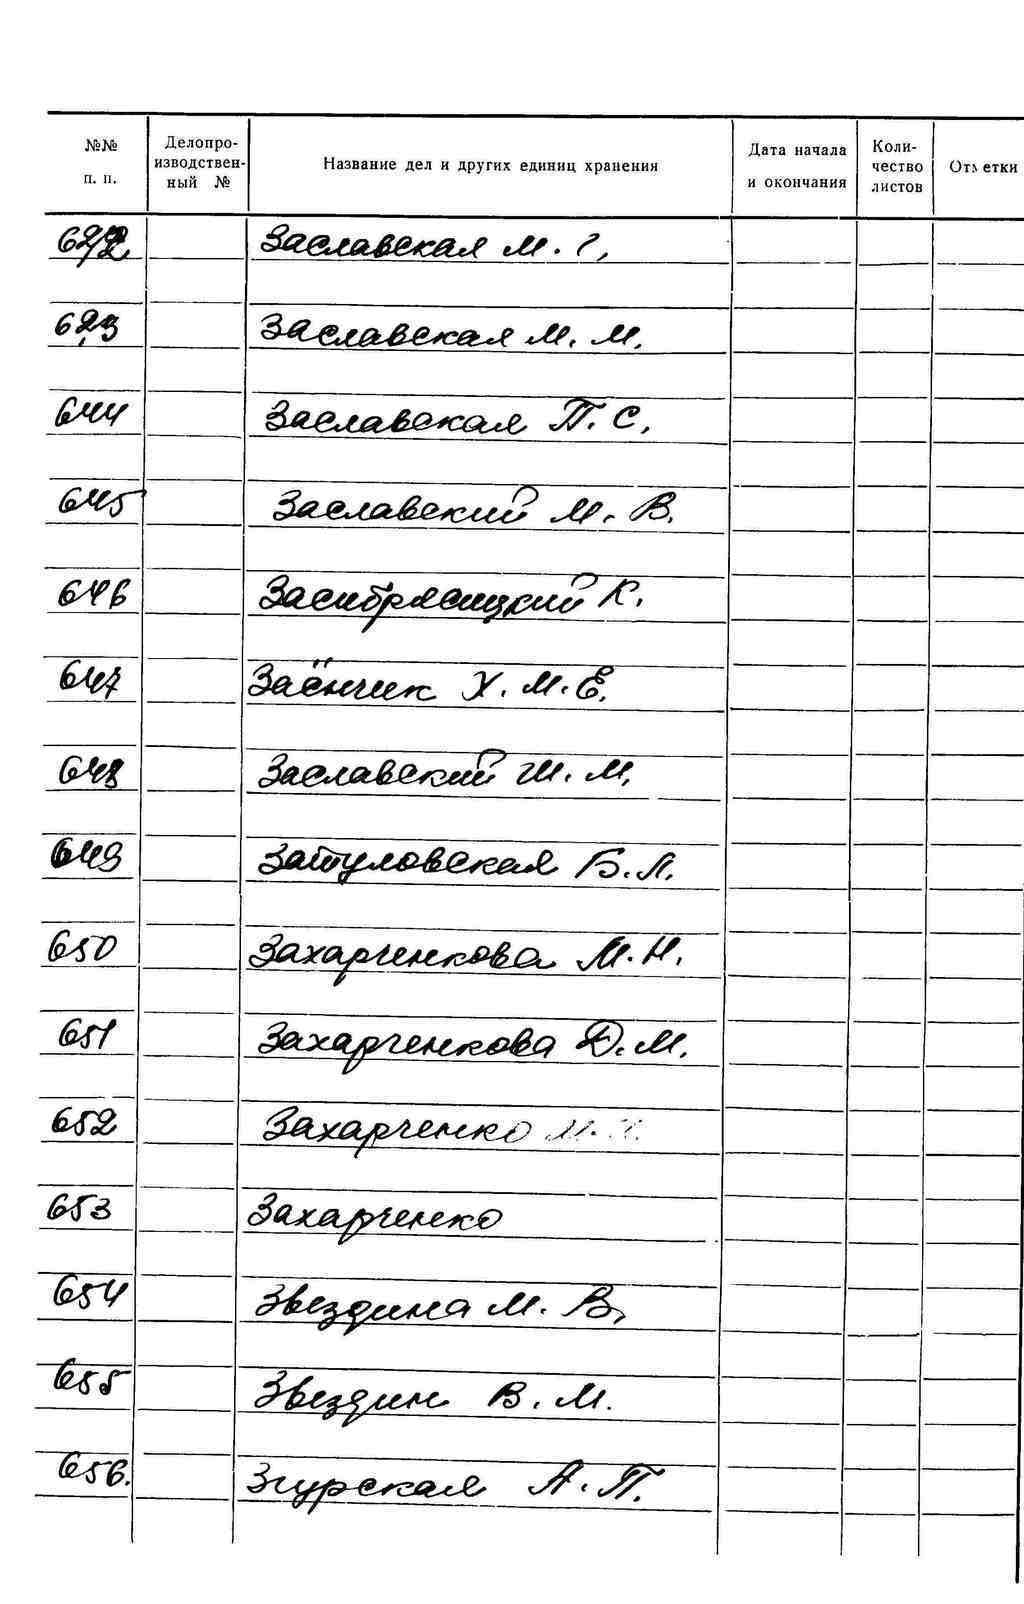 №№ п. п. Делопро-изводствен-ный № Название дел и других единиц хранения Дата начала и окончания Коли-чество листов Отметки
Заславская М. Г.
623 Заславская М. М.
644 Заславская П. С.
645 Заславский М. В.
646 К.
647 Заёнчик Х. М. Е.
648 Заславский Ш. М.
649 Затуловская Б. Л.
650 Захарченкова М. Н.
651 Захарченкова Д. М.
652 Захарченко М.
653 Захарченко
654 Звездина М. В.
655 Звездин В. М.
656. Згурская А. П.